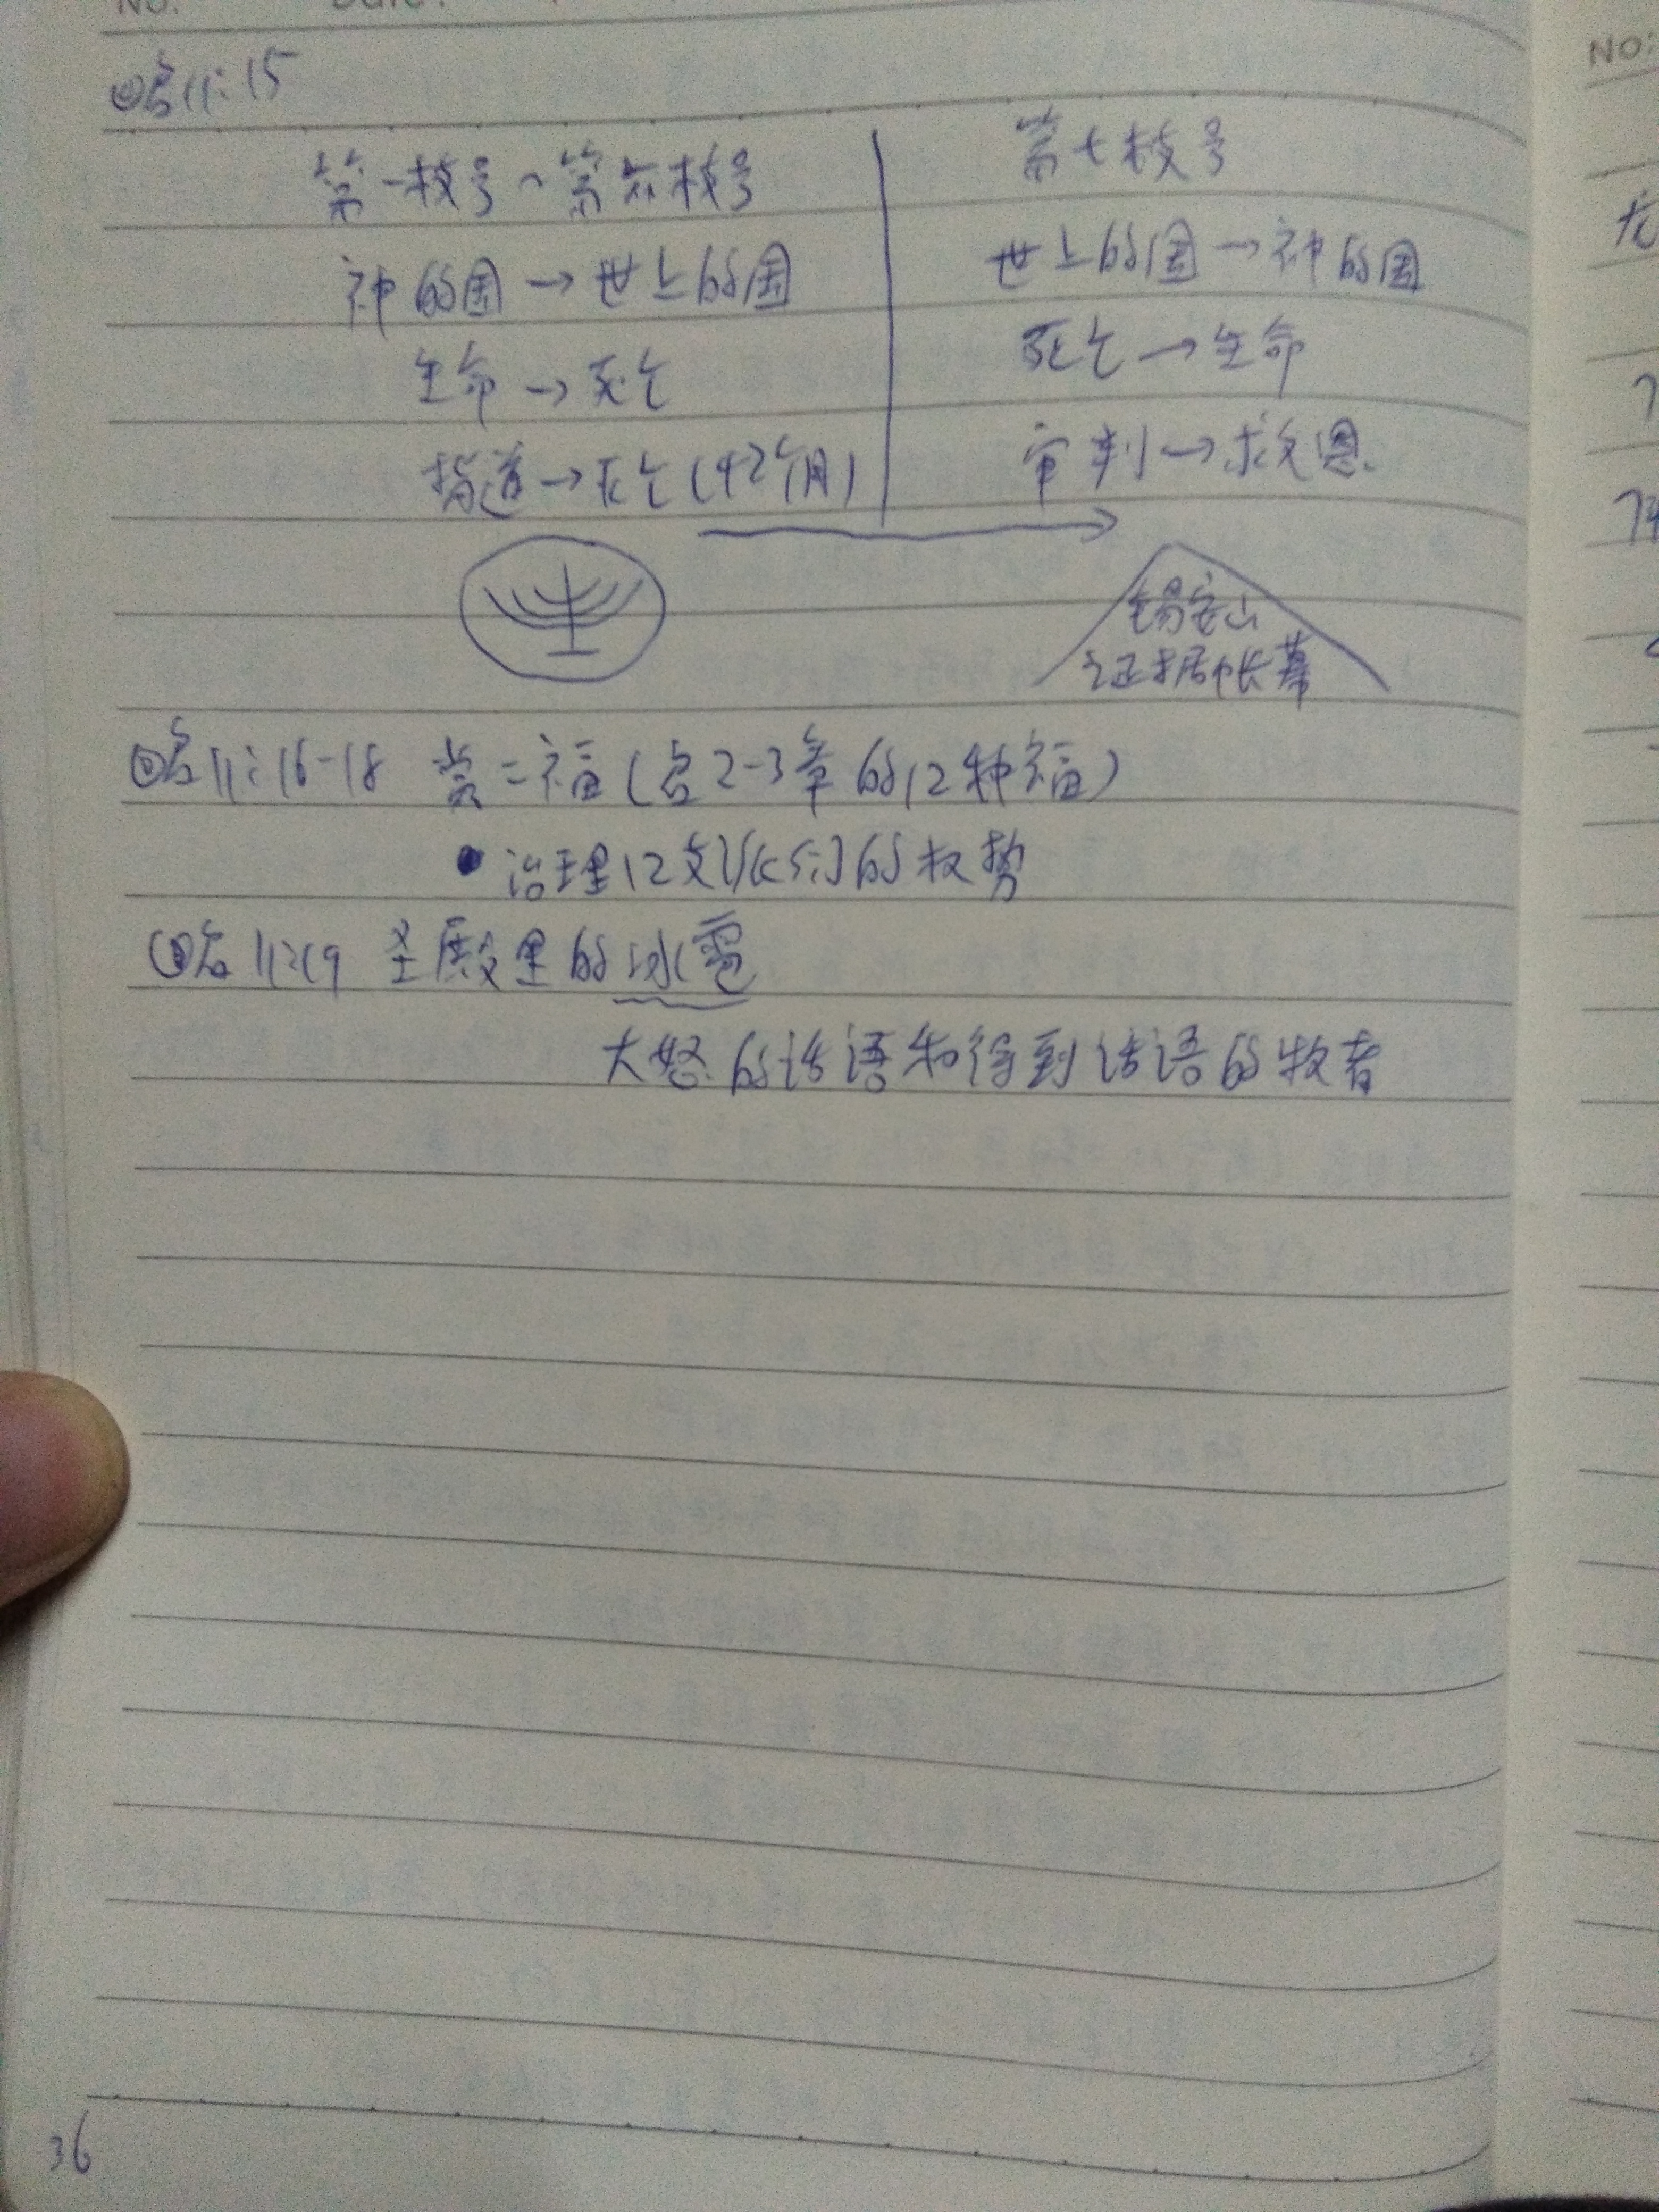 No. Date:
啓11:15
第一枝号~第六枝号
神的国→世上的国
生命→死亡
→死亡(42个月)
第七枝号
世上的国→神的国
死亡→生命
审判→救恩
锡安山
证据帐幕
啓11:16-18 赏=福(启2-3章的12种福)
• 治理12支派的权势
啓11:19 圣殿里的冰雹
大怒的话语和得到话语的牧者
36
NO: